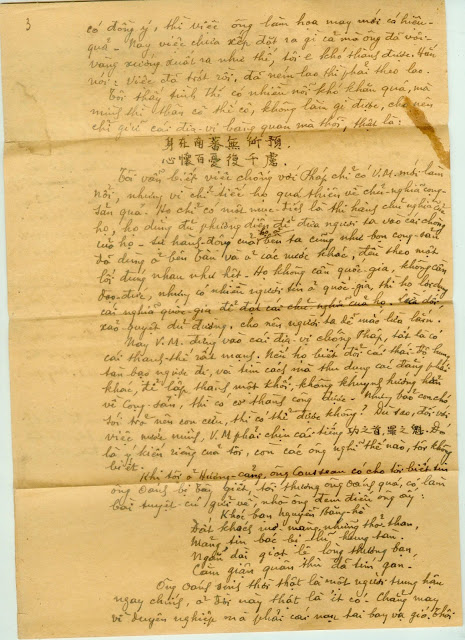 3
có đồng ý, thì việc ông làm họa may mới có hiệu-
quả - Nay việc chưa xếp đặt ra gì cả mà ông đã vội-
vàng xướng xuất ra như thế, tôi e khó thắng được. Hắn
nói: việc đã trót rồi, đã ném lao thì phải theo lao.
Tôi thấy tình thế có nhiều nỗi khó khăn quá, mà
mình thì thân cô thế cô, không làm gì được, cho nên
chỉ giữ cái địa-vị bàng quan mà thôi, thật là:
身在南蕃無所預
心懷百憂復千慮.
Tôi vẫn biết việc chống với Pháp chỉ có V.M. mới làm
nổi, nhưng vì chỉ hiềm họ quá thiên về chủ-nghĩa cộng-
sản quá. Họ chỉ có một mục-đích là thi hành chủ nghĩa của
họ, họ dùng đủ phương diện để đưa người ta vào cái chòng
của họ - sự hành-động của bên ta cũng như bọn cộng-sản
đã dùng ở bên bàn và ở các nước khác, đều theo một
lối dùng nhau như hệt. Họ không cần quốc-gia, không cần
đạo-đức, nhưng có nhiều người tin ở quốc-gia, thì họ lợi dụng
cái nghĩa quốc-gia để đạt cái chủ nghĩa của họ. Giả dối,
xảo-quyệt đủ đường. cho nên người ta dễ mắc lừa lắm.
Nay V.M. đứng vào cái địa-vị chống Pháp, tất là có
cái thanh-thế rất mạnh. Nếu họ biết đổi cái thái độ hung
tàn bạo ngược đi, và tìm cách mà thu dụng các đảng phái
khác, để lập thành một khối, không khuynh hướng hẳn
về Cộng-sản, thì có cơ thành công được. Nhưng bảo con chó
sói trở nên con cừu, thì có thể được không? Dù sao, đối với
việc nước mình, V.M phải chịu cái tiếng 功之首罪之魁. Đó
là ý kiến riêng của tôi, còn các ông nghĩ thế nào, tôi không
biết.
Khi tôi ở Hương-cảng, ông Cousseau có cho tôi biết tin
ông Oánh bị bắt, giết, tôi thương ông Oánh quá, có làm
bài tuyệt cú gửi về, nhờ ông đem điếu ông ấy:
Khóc bạn Nguyễn Bằng-hồ
Đất khách mơ màng những thở than,
Mảng tin bác bị lũ hung tàn.
Ngắn dài giọt lệ lòng thương bạn,
Căm giận quân thù dạ tím gan.
Ông Oánh sinh thời thật là một người trung hậu
ngay chính, ở đời này thật là ít có. Chẳng may
vì duyên nghiệp mà phải cái nạn tai bay vạ gió. Thôi